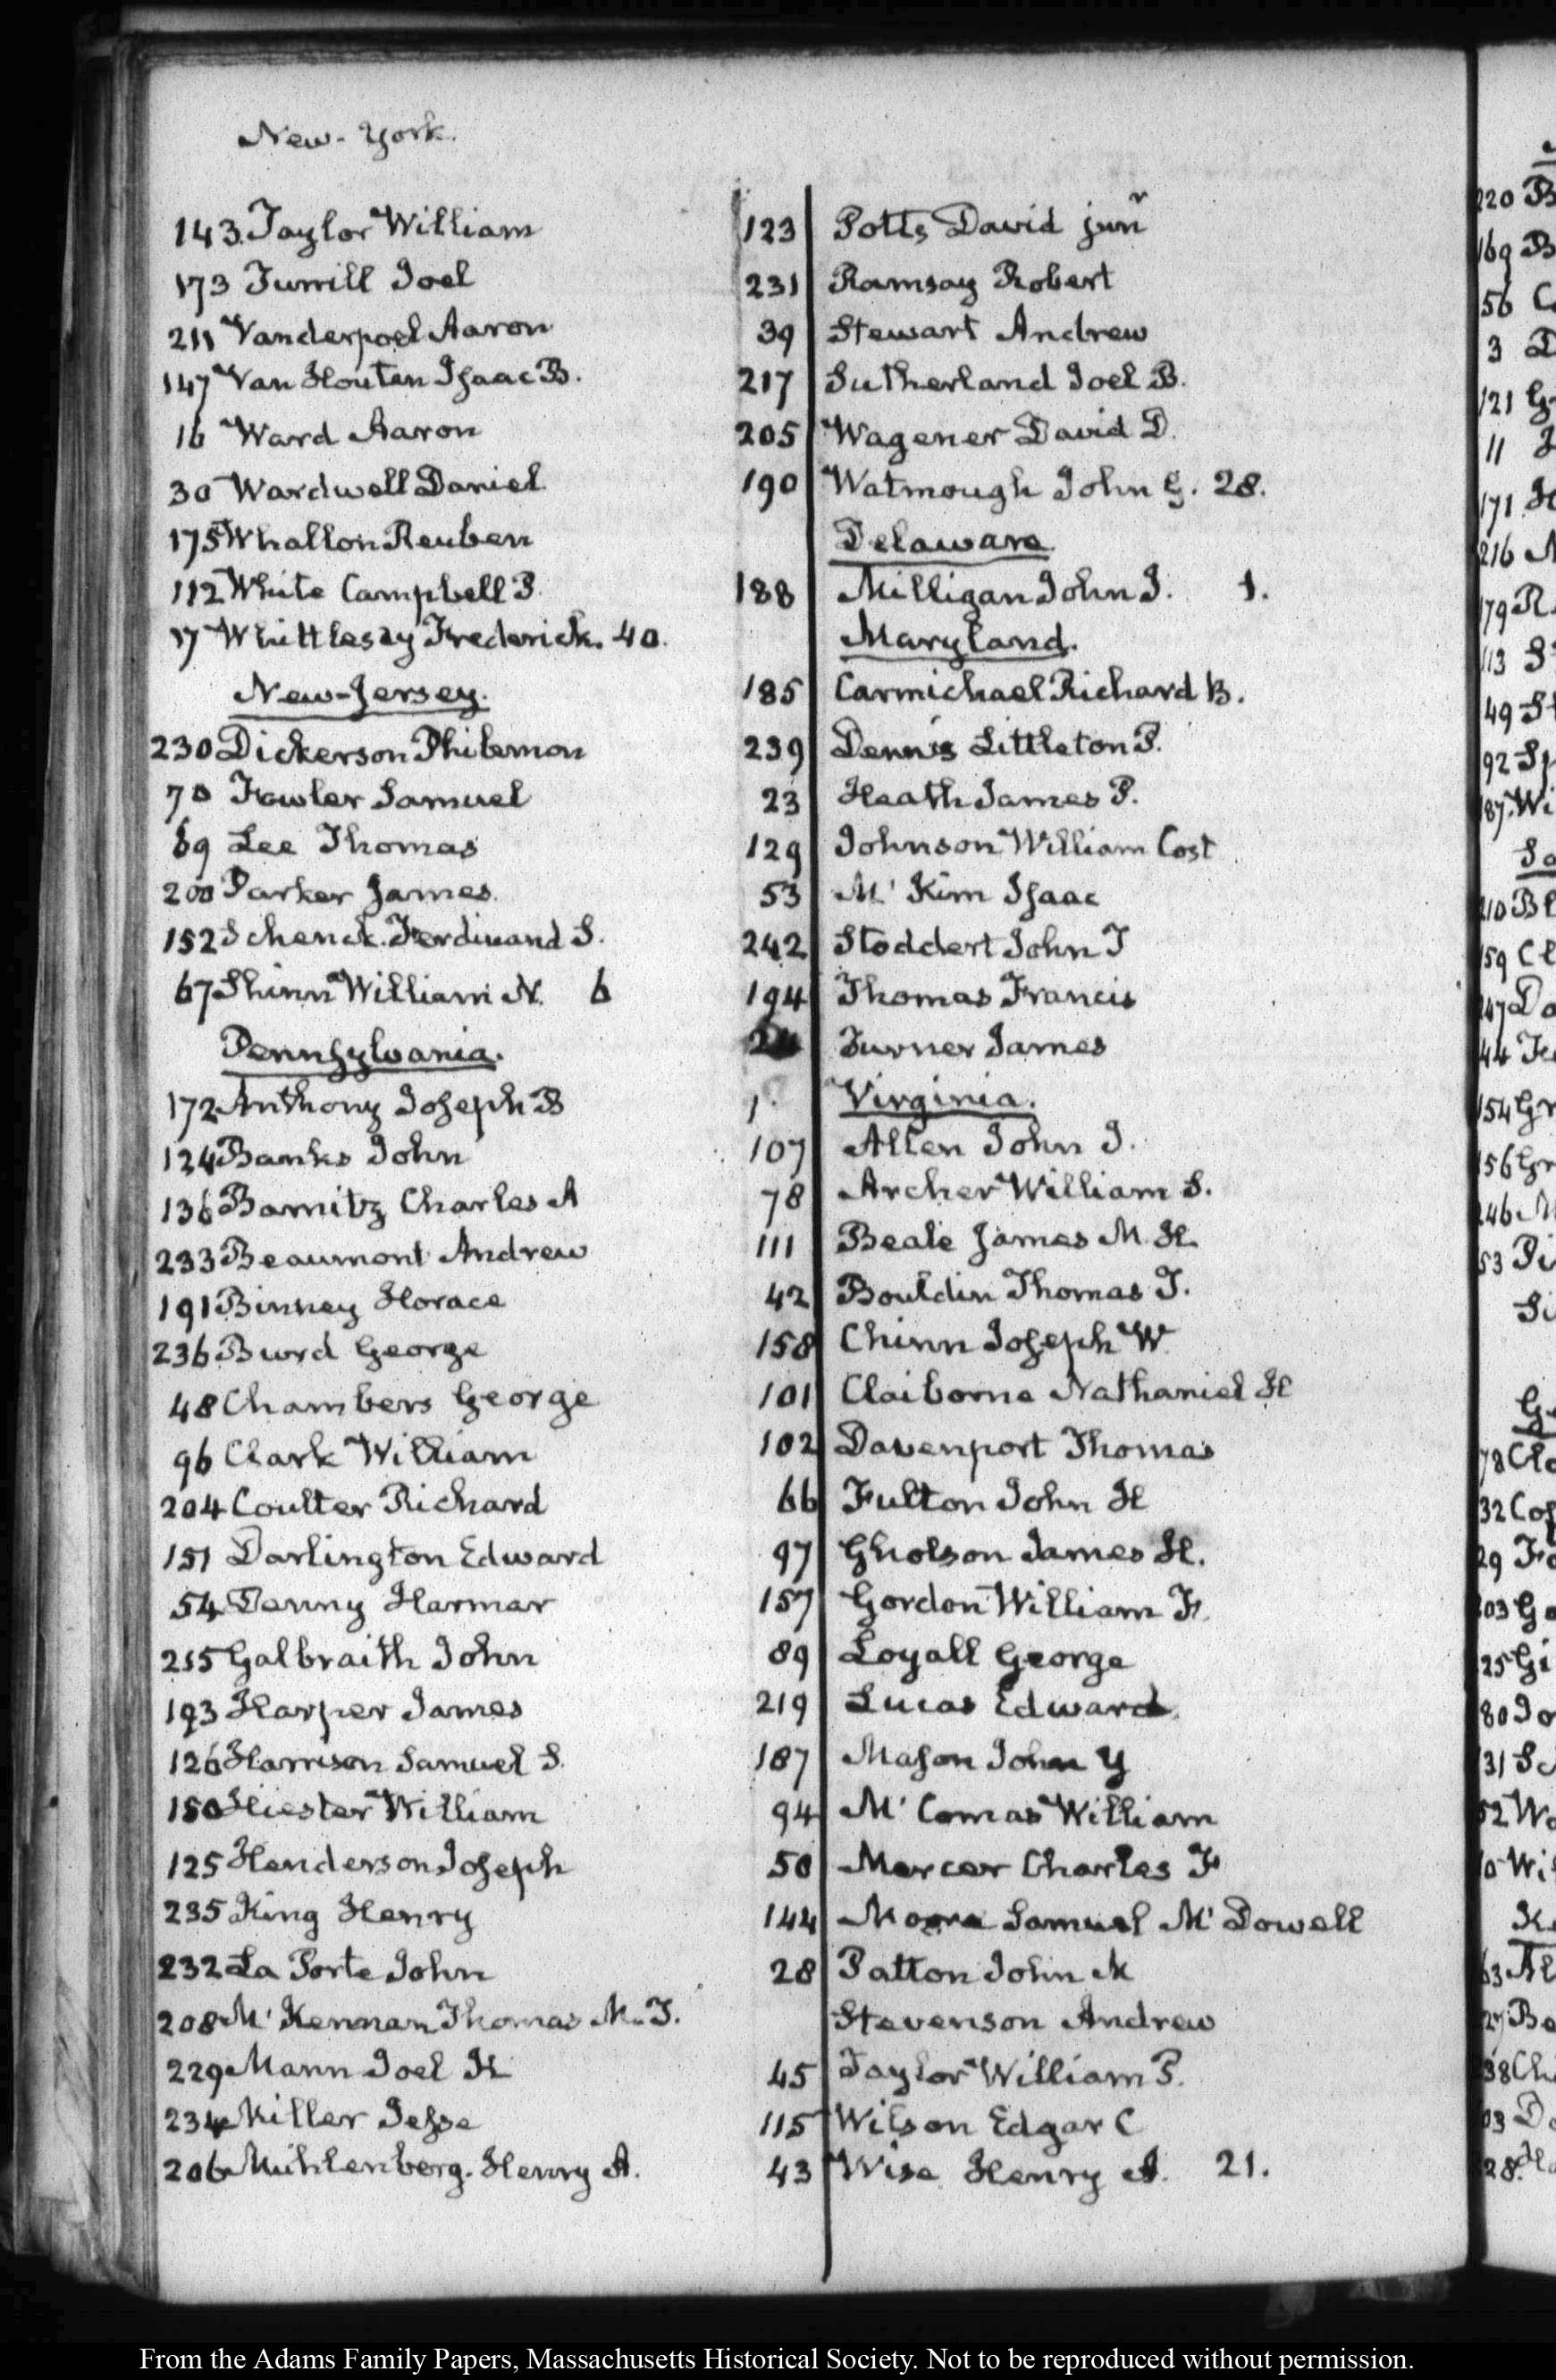 New-York.
143. Taylor William
173 Turrill Joel
211 Vanderpoel Aaron
147 Van Houten Isaac B.
16 Ward Aaron
30 Wardwell Daniel
175 Whallon Reuben
112 White Campbell P.
17 Whittlesey Frederick. 40.
New-Jersey.
230 Dickerson Philemon
70 Fowler Samuel
69 Lee Thomas
200 Parker James
152 Schenck Ferdinand S.
67 Shinn William N. 6
Pennsylvania.
172 Anthony Joseph B
124 Banks John
136 Barnitz Charles A
233 Beaumont Andrew
191 Binney Horace
236 Burd George
48 Chambers George
96 Clark William
204 Coulter Richard
151 Darlington Edward
54 Denny Harmar
215 Galbraith John
193 Harper James
126 Harrison Samuel S.
150 Hiester William
125 Henderson Joseph
235 King Henry
232 La Porte John
208 Mc Kennan Thomas M. T.
229 Mann Joel K
234 Miller Jesse
206 Muhlenberg. Henry A.
123 Potts David junr
231 Ramsay Robert
39 Stewart Andrew
217 Sutherland Joel B.
205 Wagener David D.
190 Watmough John G. 28.
Delaware
188 Milligan John J. 1.
Maryland.
185 Carmichael Richard B.
239 Dennis Littleton P.
23 Heath James P.
129 Johnson William Cost
53 Mc Kim Isaac
242 Stoddert John T
194 Thomas Francis
Turner James
1 Virginia.
107 Allen John J.
78 Archer William S.
111 Beale James M. H.
42 Bouldin Thomas T.
158 Chinn Joseph W
101 Claiborne Nathaniel H
102 Davenport Thomas
66 Fulton John H
97 Gholson James H.
157 Gordon William F.
89 Loyall George
219 Lucas Edward
187 Mason John Y
94 Mc Comas William
50 Mercer Charles F
144 Moore Samuel Mc Dowell
28 Patton John M
Stevenson Andrew
45 Taylor William P.
115 Wilson Edgar C
43 Wise Henry A. 21.
From the Adams Family Papers, Massachusetts Historical Society. Not to be reproduced without permission.